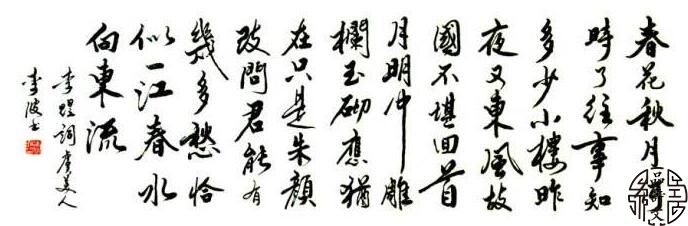 春花秋月
時了往事知
多少小樓昨
夜又東風故
國不堪回首
月明中雕
欄玉砌應猶
在只是朱顏
改問君能有
幾多愁恰
似一江春水
向東流
李煜詞虞美人
李波书